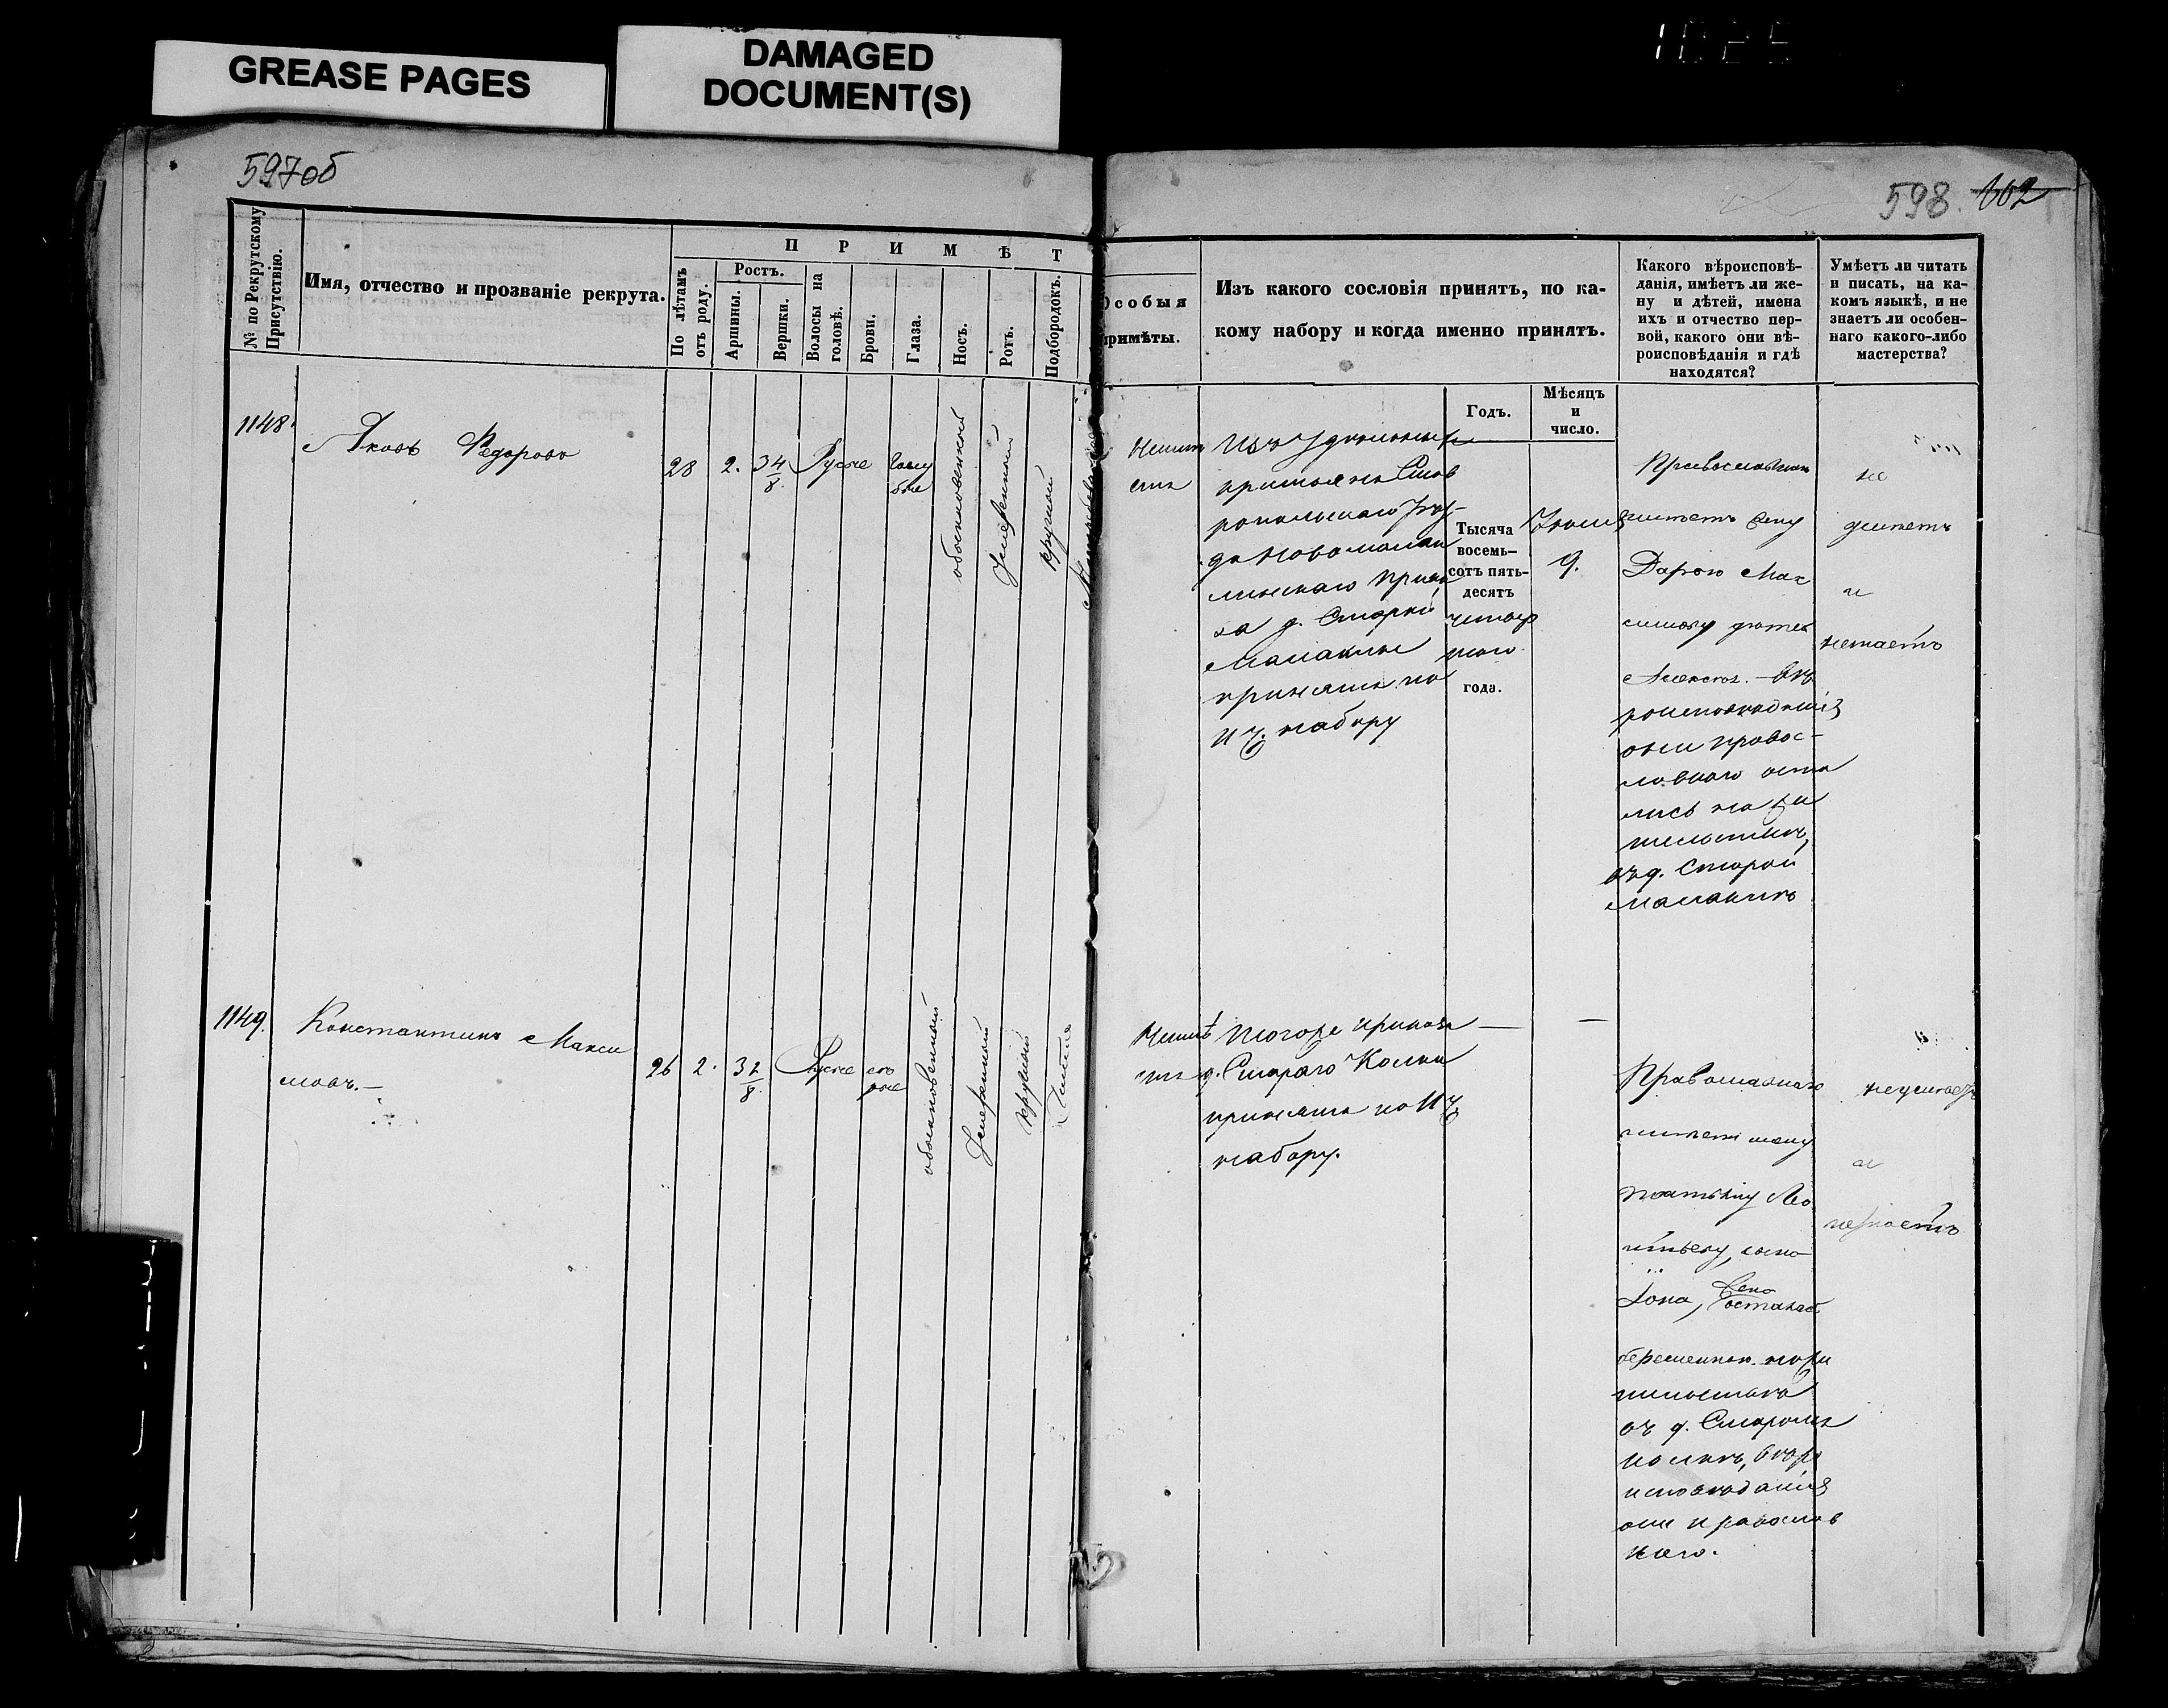 GREASE PAGES
DAMAGED
DOCUMENT(S)
597об
598. 602
№ по Рекрутскому
Присутствію.
Имя, отчество и прозваніе рекрута.
П Р И М Ѣ Т
По лѣтамъ
отъ роду.
Ростъ.
Аршины.
Вершки.
Волосы на
головѣ.
Брови.
Глаза.
Носъ.
Ротъ.
Подбородокъ.
Особыя
примѣты.
Изъ какого сословія принятъ, по ка-
кому набору и когда именно принятъ.
Какого вѣроисповѣ-
данія, имѣетъ ли же-
ну и дѣтей, имена
ихъ и отчество пер-
вой, какого они вѣ-
роисповѣданія и гдѣ
находятся?
Умѣетъ ли читать
и писать, на ка-
комъ языкѣ, и не
знаетъ ли особен-
наго какого-либо
мастерства?
Годъ.
Мѣсяцъ
и
число.
1148.
Яковъ Федоровъ
28
2.
3 4/8
Русые
Голу
бые
обыкновенной
Умеренной
круглой
Неимѣ
етъ
Изъ Удѣльныхъ
крестьянъ Став
ропольскаго Уѣз-
да Новомалык
линскаго Прика
за д. Старой
Малыклы
принятъ по
11 ч. набору
Тысяча
восемь-
сотъ пять-
десятъ
четвер
таго
года.
Іюня
9.
Православнаго
имѣетъ жену
Дарью Мак
симову дѣтей
Алексѣя. – Вѣ
роисповѣданія
они правос-
лавнаго оста
лись на жи
тельствѣ,
въ д. Старой
Малыклѣ
не
умѣетъ
и
незнаетъ
1149.
Константинъ Макси
мовъ. –
26
2.
3 2/8
Русые
сѣ
рые
обыкновенной
Умеренной
круглой
Чистое
Неимѣ
етъ
Тогоже приказа
д. Стараго
принятъ по 11 ч
набору.
—
—
Православнаго
имѣетъ жену
Татьяну Ле
онтьеву, сына
Іона, жена
осталась
беременною. на жи
тельствѣ
въ д. Старомъ
вѣро
исповѣданія
они православ
наго.
неумѣетъ
и
незнаетъ